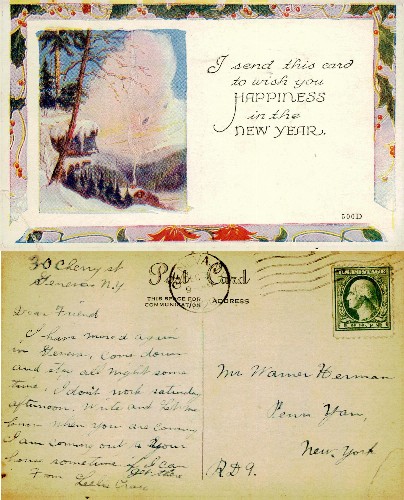 I send this card
to wish you
HAPPINESS
in the
NEW YEAR.
500D
30 Cherry st
Geneva N.Y
Post Card
THIS SPACE FOR
COMMUNICATION
ADDRESS
Dear Friend
I have moved again
in Geneva, Come down
and stay all night some
time. I don't work saturday
afternoon. Write and let me
know when you are coming
I am coming out to your
home sometime if I can
get there
From
Mr Warner Herman
Penn Yan,
New York
R.D9.